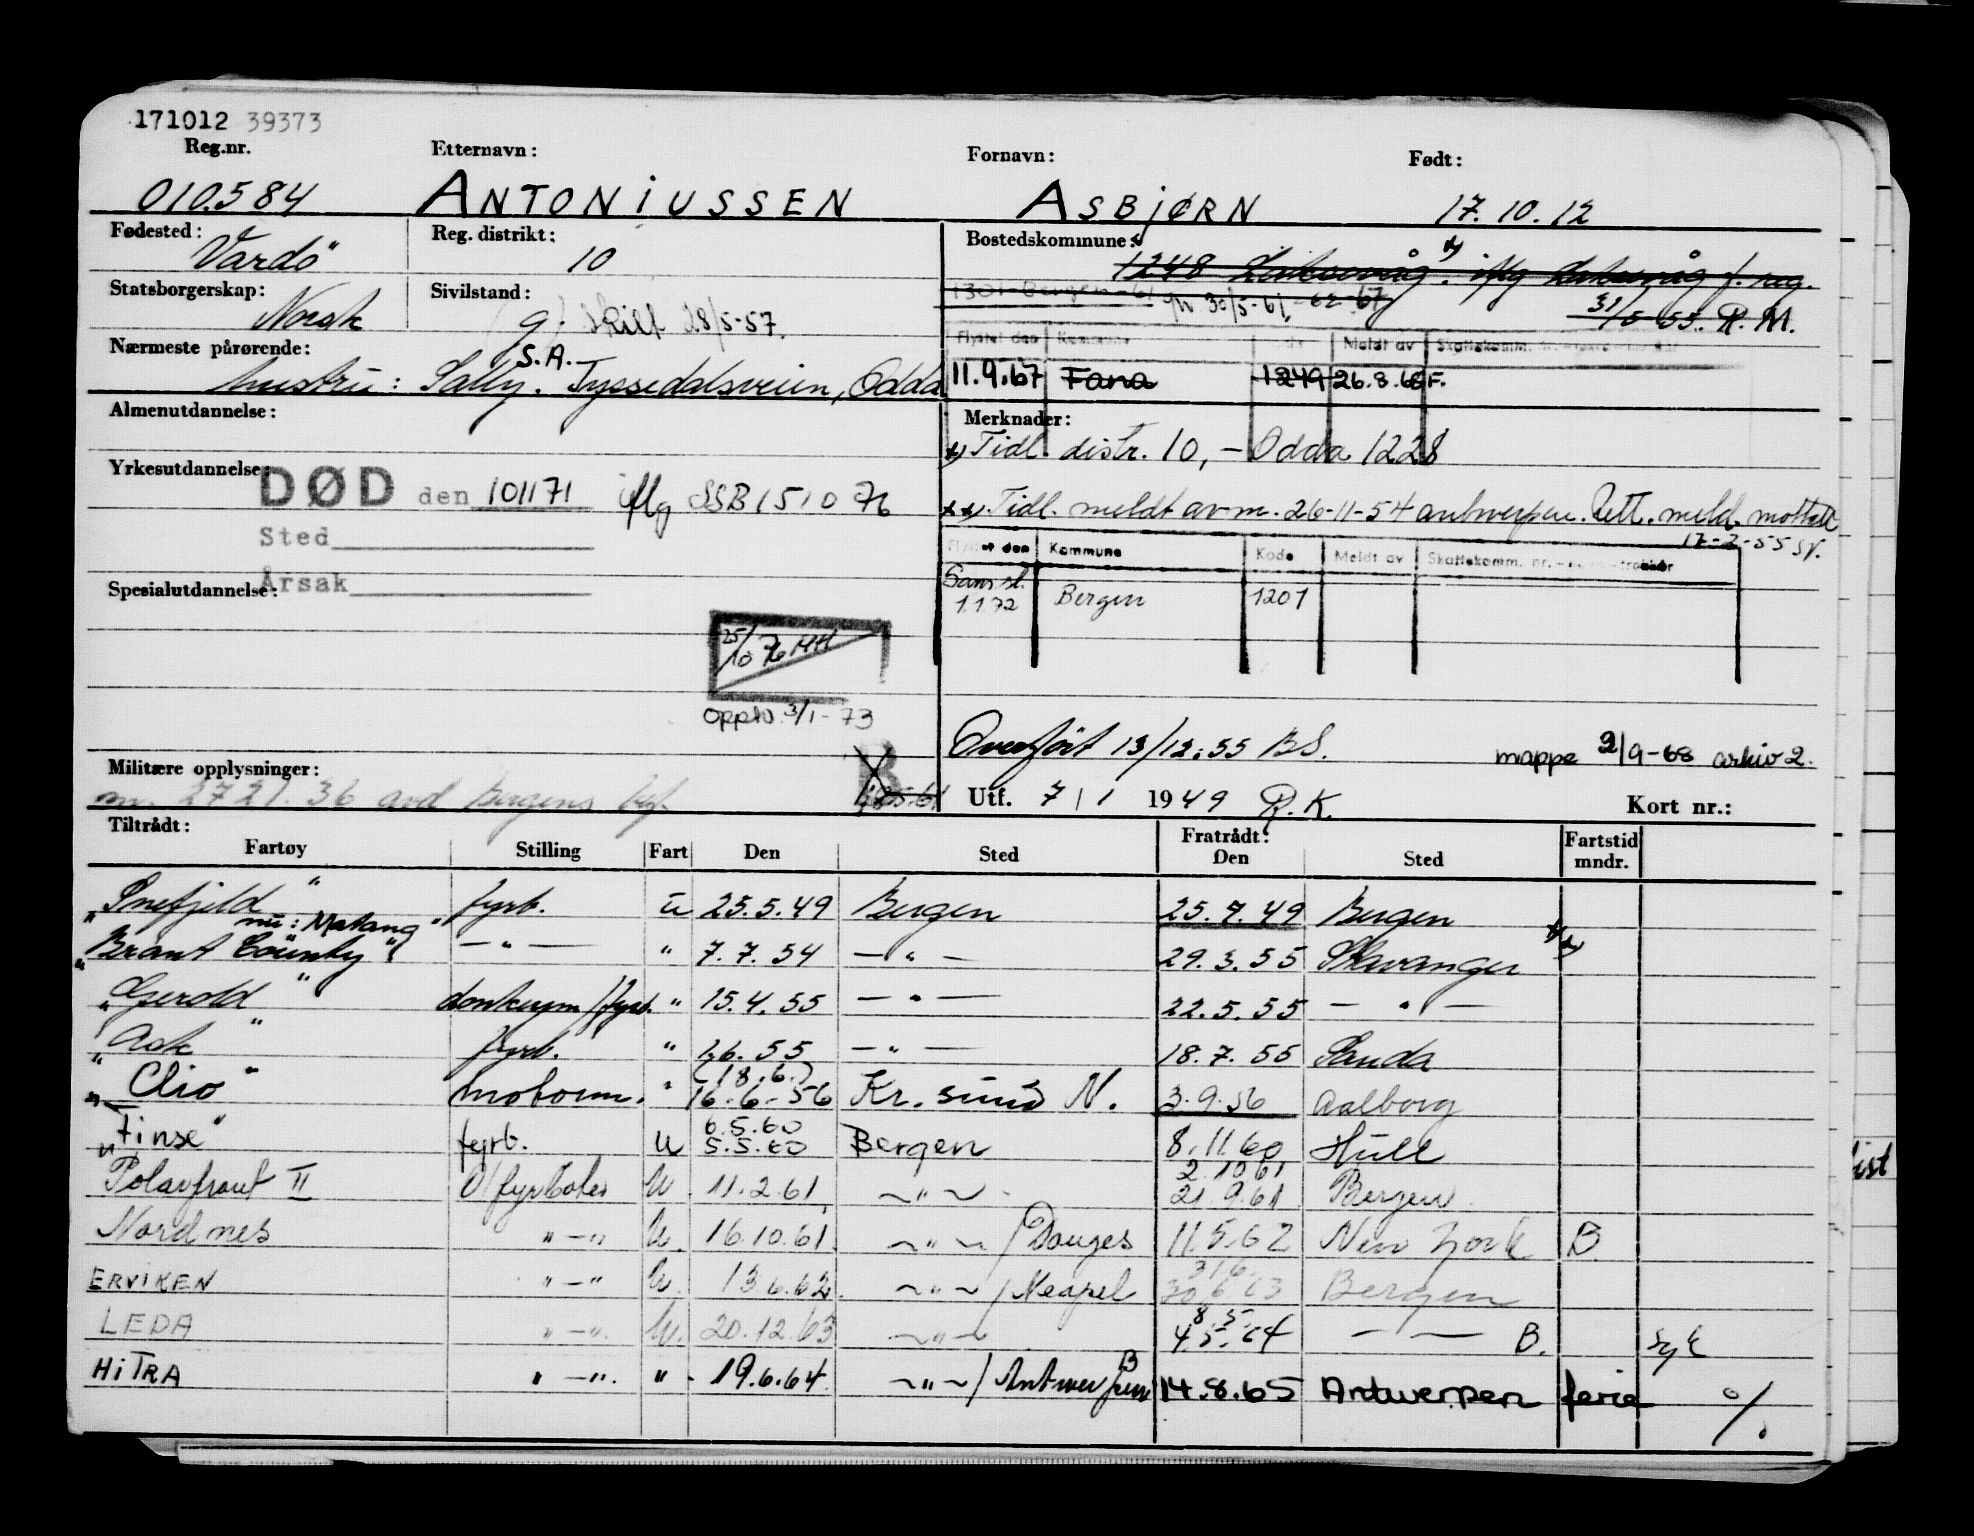 171012 39373
Reg.nr. Etternavn: Fornavn: Født:
010.584 ANTONIUSSEN ASBJØRN 17.10.12
Fødested: Vardö
Reg. distrikt: 10
Statsborgerskap: Norsk
Sivilstand: g. skilt 28/5-57.
S.A.
Nærmeste pårørende: hustru: Sally. Tyssedalsveien, Odda
Bostedskommune: x)
1248 Laksevåg. iflg Laksevåg f. reg.
31/5-55. R.M.
1301-Bergen-61 30/5-61,-62-67
Flyttet den Kommune Meldt av Skattekomm.
11.9.67 Fana 1249 26.8.68 F.
Almenutdannelse:
Merknader:
x) Tidl. distr. 10, - Odda 1228
Yrkesutdannelse:
DØD den 101171 iflg SSB 151076
Sted
Årsak
xx) Tidl. meldt av m. 26-11-54 antwerpen. Rett. meld. mottatt
17-2-55 sv.
Flyttet den Kommune Kode Meldt av Skattekomm. nr.
Sams sl.
1.1.72 Bergen 1201
Spesialutdannelse:
25/10 76 HH
Oppln 3/1-73
Overført 13/12.55 B.S.
mappe 2/9-68 arkiv 2.
Militære opplysninger:
nr. 2721.36 avd Bergens
B
Utf. 7/1 1949 R.K.
Kort nr.:
Tiltrådt: Fratrådt:
Fartøy Stilling Fart Den Sted Den Sted Fartstid mndr.
"Snefjeld" fyrb. u 25.5.49 Bergen 25.7.49 Bergen
nu: Matang"
"Brant County" — " — " 7.7.54 — " — 29.3.55 Stavanger xx)
"Gerold" donkeym/fyrb. " 15.4.55 — " — 22.5.55 — " —
"Ask" fyrb. " 1.6.55 — " — 18.7.55 Sauda
(18.6.)
"Clio" motorm. " 16.6.56 Kr.sund N. 3.9.56 Aalborg
6.5.60
"Finse" fyrb. u 5.5.60 Bergen 8.11.60 Hull
2.10.61
Polarfront II O/fyrbøter U 11.2.61 — " — 21.9.61 Bergen.
Nordnes " — " U. 16.10.61. — " — / Donges 11.5.62 New York B
31.6.
ERVIKEN " — " U. 13.6.62. — " — / Neapel 30.6.63 Bergen
8.5.
LEDA " — " U. 20.12.63 — " — 4.5.64 — — B. syk
HITRA " — " " 19.6.64. — " — / Antwerpen B 14.8.65 Antwerpen ferie
%
ist